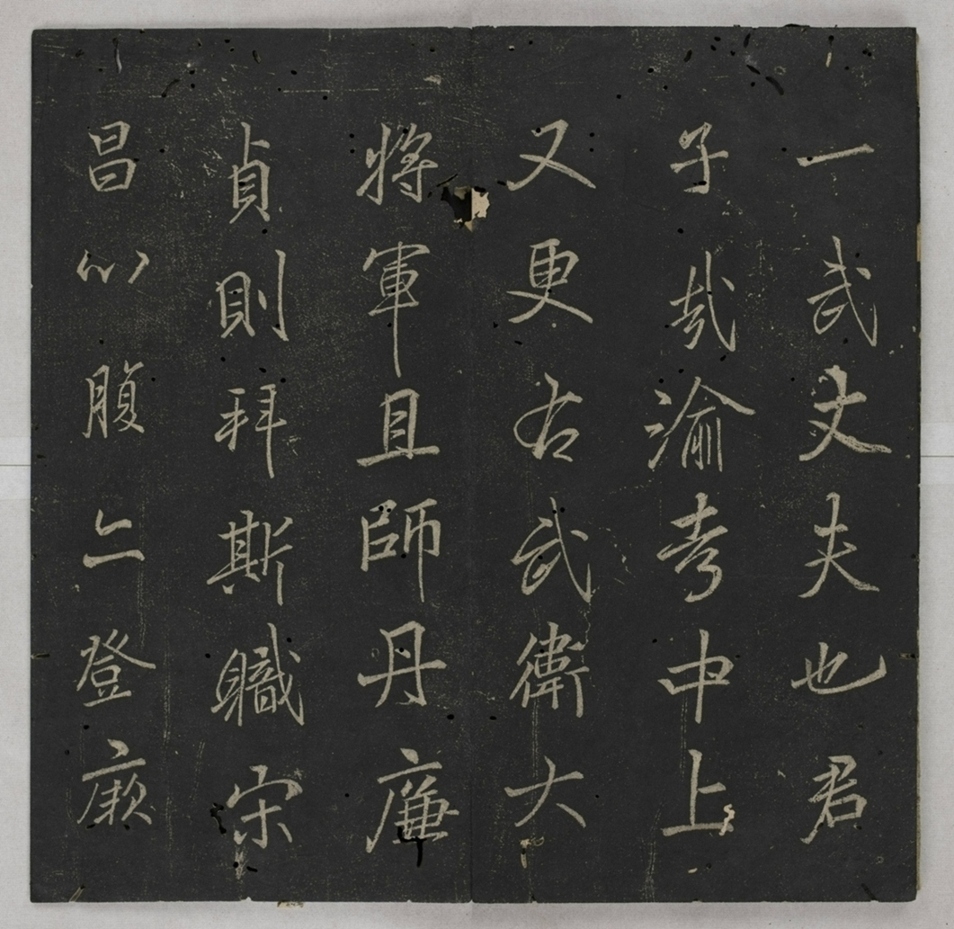 一武丈夫也君
子哉渝考中上
又更右武衛大
將軍且師丹廉
貞則拜斯職宋
昌以腹心亦登厥